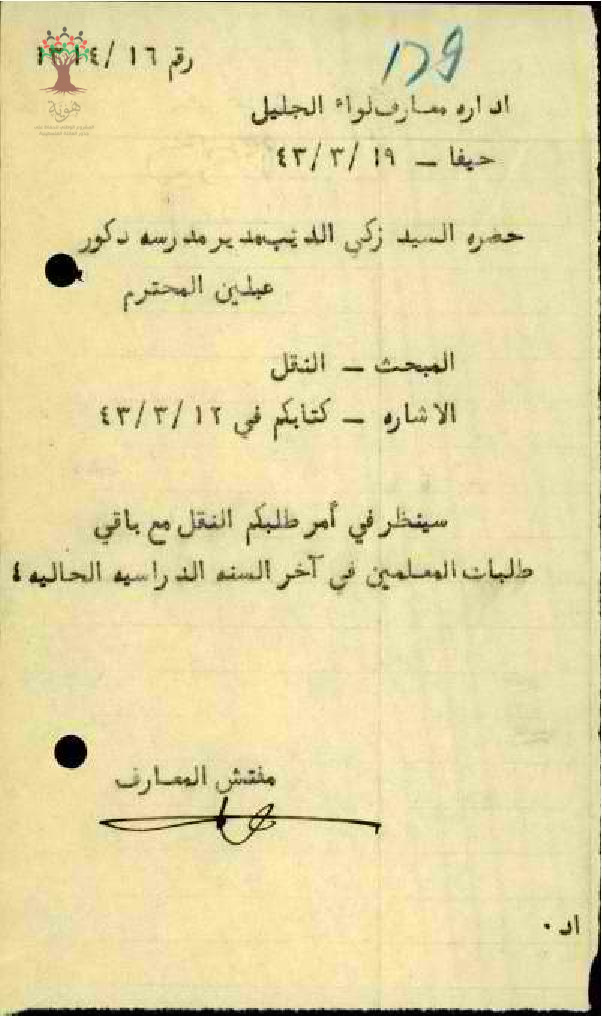 رقم ١٣١٤/١٦
179
هوية
اداره معارف لواء الجليل
حيفا – ٤٣/٣/١٩
حضره السيد زكي الذيب مدير مدرسه ذكور
عبلين المحترم
المبحث – النقل
الاشاره – كتابكم في ٤٣/٣/١٢
سينظر في أمر طلبكم النقل مع باقي
طلبات المعلمين في آخر السنه الدراسيه الحاليه ،
مفتش المعارف
اد ٠